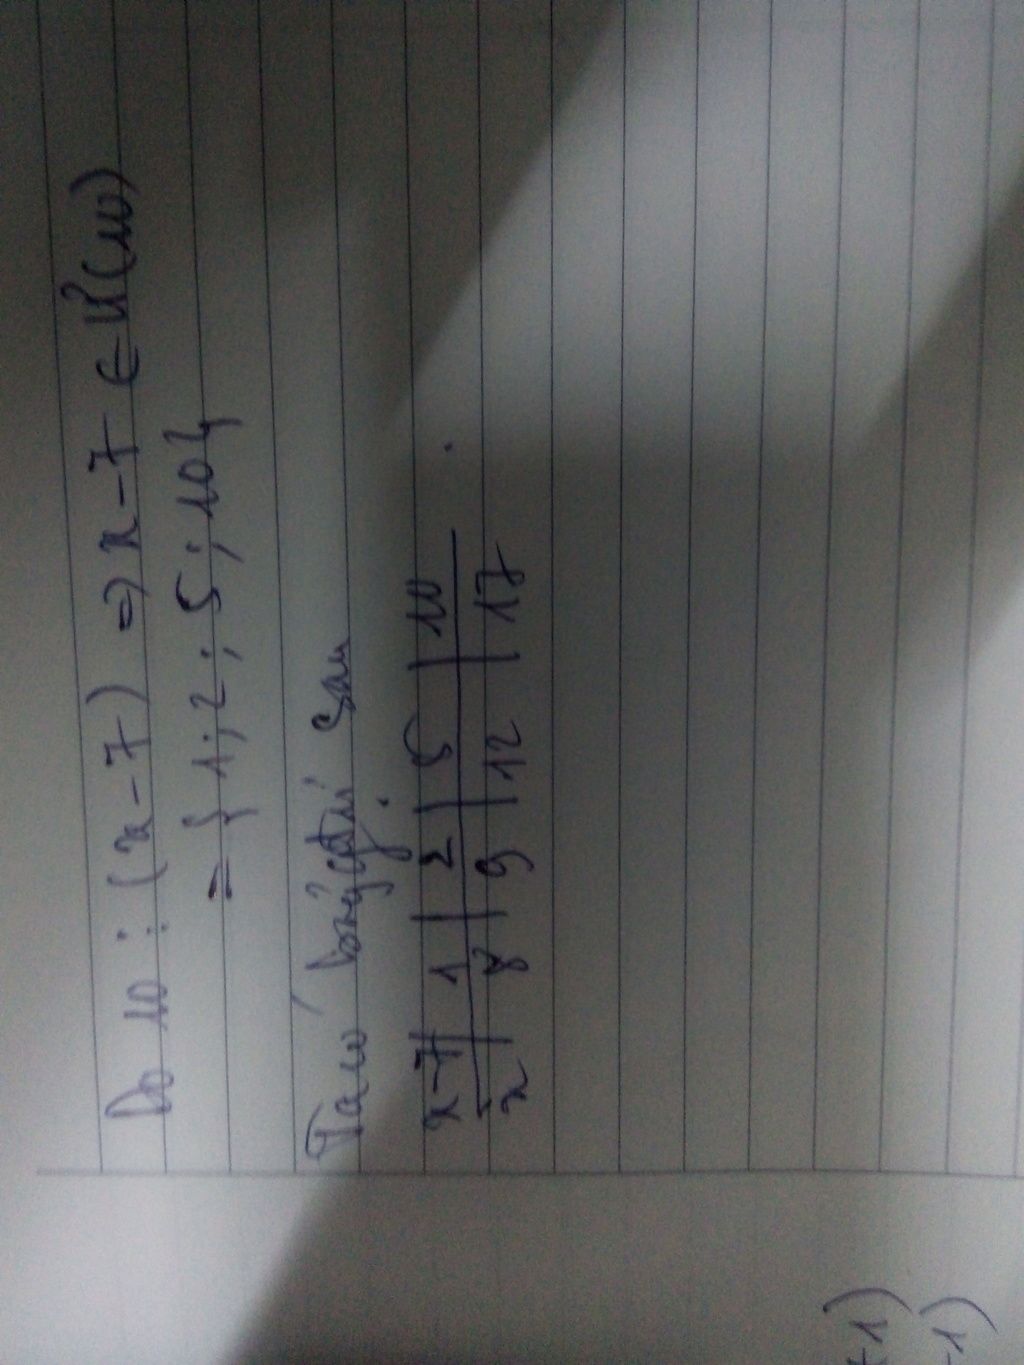 Do 10 ⋮ (x-7) ⇒ x-7 ∈ Ư(10)
= {1; 2; 5; 10}
Ta có bảng giá trị sau
x-7 | 1 | 2 | 5 | 10
x | 8 | 9 | 12 | 17
+1)
-1)